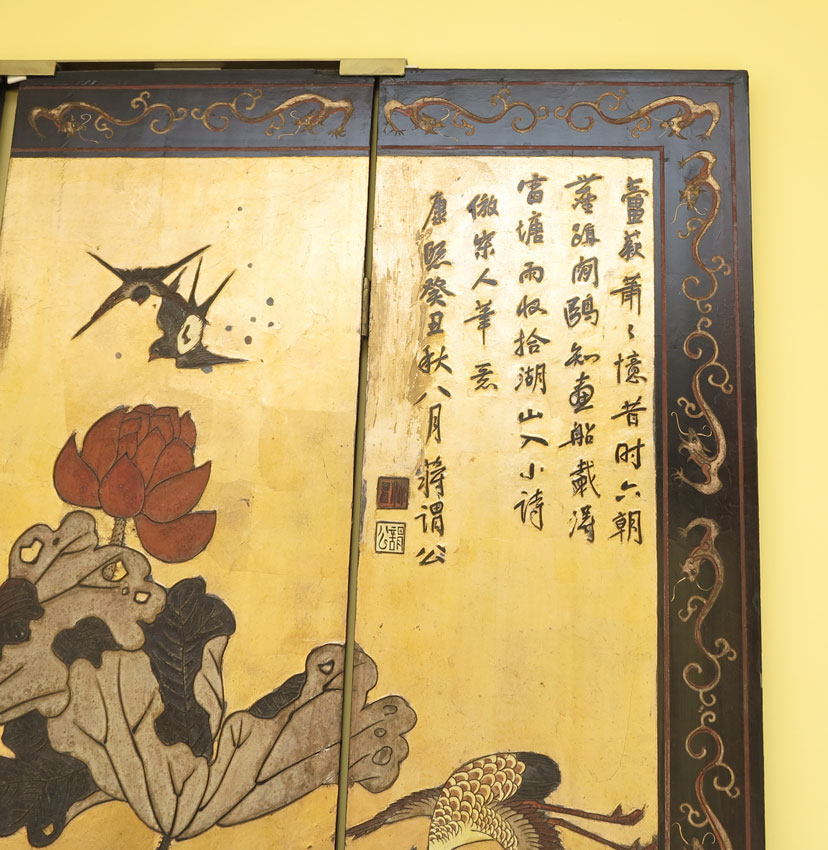 荻蕭〻憶昔时六朝
落閒鷗知畫船載得
塘雨收拾湖山入小詩
倣宋人筆意
康熙癸丑秋八月蔣謂公
謂公